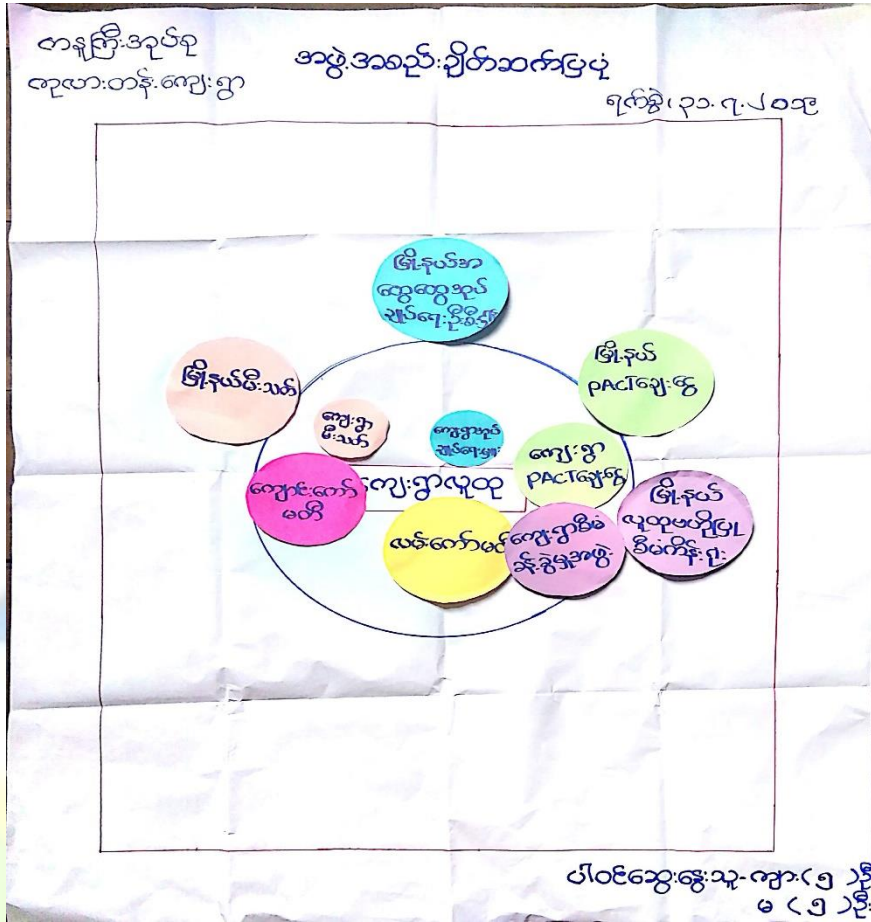 ကနူကြီးအုပ်စု
ကုလားတန်းကျေးရွာ
အဖွဲ့အစည်းချိတ်ဆက်ပြပုံ
ရက်စွဲ၊ ၃၁.၇.၂၀၁၉
မြို့နယ်အ
ထွေထွေအုပ်
ချုပ်ရေးဦးစီးဌာန
မြို့နယ်မီးသတ်
မြို့နယ်
PACTချေးငွေ
ကျေးရွာ
မီးသတ်
ကျေးရွာအုပ်
ချုပ်ရေးမှူး
ကျေးရွာ
PACTချေးငွေ
ကျောင်းကော်
မတီ
ကျေးရွာလူထု
လမ်းကော်မတီ
ကျေးရွာစီမံ
ခန့်ခွဲမှုအဖွဲ့
မြို့နယ်
လူထုဗဟိုပြု
စီမံကိန်းရုံး
ပါဝင်ဆွေးနွေးသူ-ကျား(၅)ဦး
မ (၅)ဦး